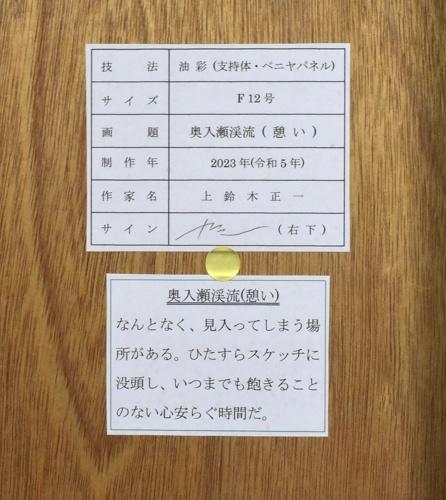 技法 油彩(支持体・ベニヤパネル)
サイズ F12号
画題 奥入瀬渓流(憩い)
制作年 2023年(令和5年)
作家名 上鈴木正一
サイン (右下)
奥入瀬渓流(憩い)
なんとなく、見入ってしまう場
所がある。ひたすらスケッチに
没頭し、いつまでも飽きること
のない心安らぐ時間だ。